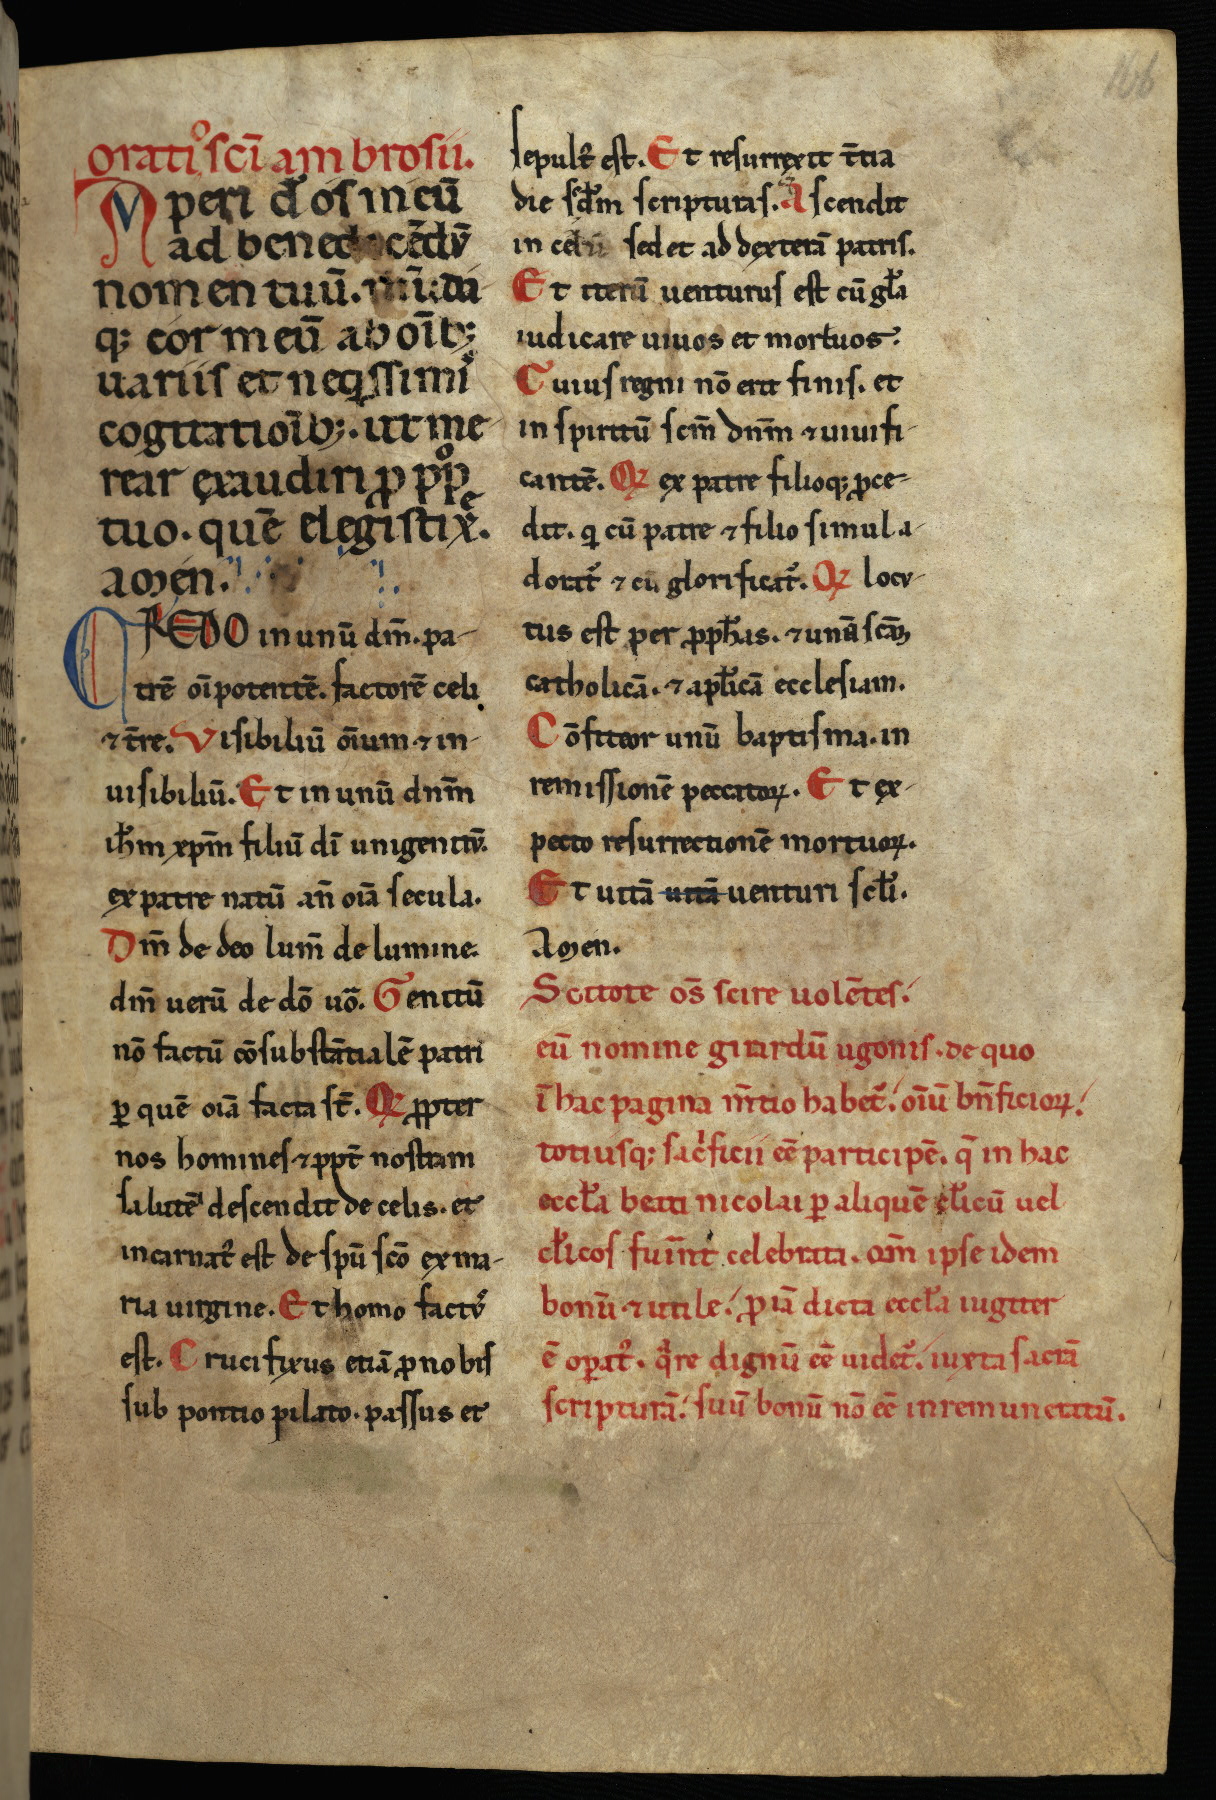 166
orati° sc̄i ambrosii.
Aperi d̄ os meū
ad bened cēdū
nomen tuū. mūda
q; cor meū ab oīb;
uariis et neqissimis
cogitatioīb;. ut me-
rear exaudiri ꝓ pp̄lo
tuo. quē elegisti xp̄e.
amen.
CREDO in unū dm̄. pa-
trē oīpotentē. factorē celi
⁊ t̄re. Visibiliū oīum ⁊ in-
uisibiliū. Et in unū dnm̄
ih̄m xp̄m filiū dī unigenitū.
ex patre natū an̄ oīa secula.
Dm̄ de deo lum̄ de lumine.
dm̄ uerū de dō uō. Genitū
nō factū cōsubstātialē patri
ꝑ quē oīa facta st̄. Qꝛ ꝓpter
nos homines ⁊ ꝓpt̄ nostram
salutē descendit de celis. et
incarnat᷒ est de spū scō ex ma-
ria uirgine. Et homo factus
est. Crucifixus etiā ꝓ nobis
sub pontio pilato. passus et
sepult᷒ est. Et resurrexit t̄tia
die sc̄dm scripturas. Ascendit
in celū sedet ad dexterā patris.
Et iterū uenturus est cū gl̄a
iudicare uiuos et mortuos.
Cuius regni nō erit finis. et
in spiritū scm̄ dnm̄ ⁊ uiuifi-
cantē. Qꝛ ex patre filioq; ꝓce-
dit. q̄ cū patre ⁊ filio simul a-
dorat᷒ ⁊ cū glorificat᷒. Qꝛ locu-
tus est per ꝓph̄as. ⁊ unā scām
catholicā. ⁊ apl̄icā ecclesiam.
Cōfiteor unū baptisma. in
remissionē peccatoꝝ. Et ex-
pecto resurrectionē mortuoꝝ.
Et uitā uitā uenturi scl̄i.
Amen.
Scitote os̄ scire uolētes.
eū nomine girardū ugonis. de quo
ī hac pagina m̄tio habet᷒. oīū bn̄ficioꝝ.
totiusq; sac̍ficii eē participē. q̄ in hac
eccl̄a beati nicolai ꝑ aliquē cl̄icū uel
cl̄icos fuīnt celebrata. qm̄ ipse idem
bonū ⁊ utile. ꝓ iā dicta eccl̄a iugiter
ē oꝑat᷒. q̄re dignū eē uidet᷒. iuxta sacrā
scripturā. suū bonū nō eē inremuneratū.